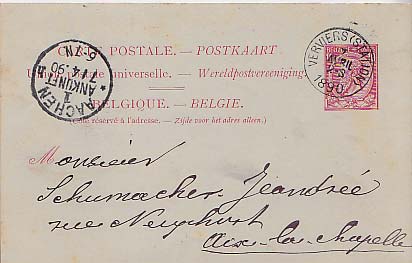 CARTE POSTALE. — POSTKAART
Union postale universelle. — Wereldpostvereeniging.
BELGIQUE. — BELGIË.
(Côté réservé à l'adresse. — Zijde voor het adres alleen.)
AACHEN
1
ANKUNFT
1 4 90
6-7 N
VERVIERS (STATION)
1890
Monsieur
Schumacher-Jeandrée
rue
Aix-la-Chapelle